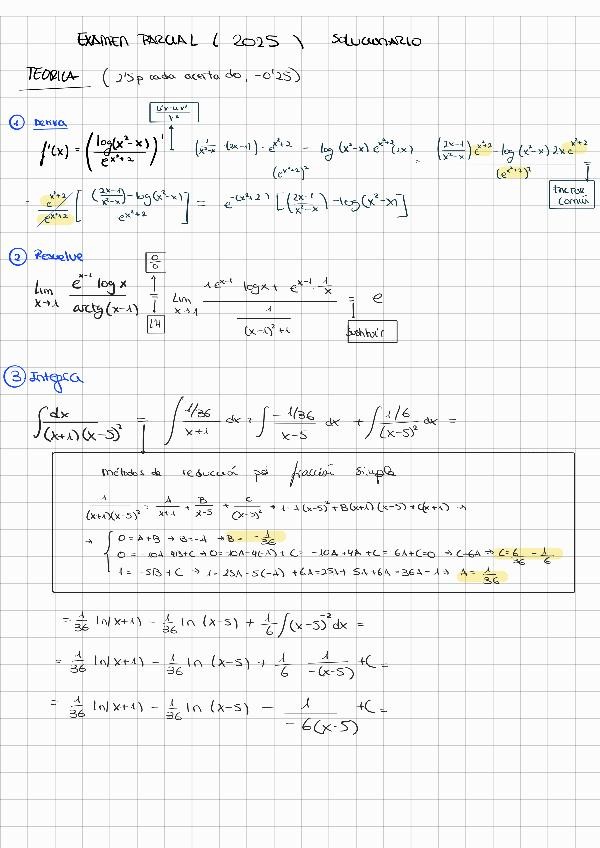 EXAMEN PARCIAL ( 2025 ) SOLUCIONARIO
TEORICA
① Deriva
u'v-uv' / v²
f'(x) = (log(x²-x) / e^(x²+2))'
(e^(x²+2))²
(e^(x²+2))²
factor común
= e^(x²+2) / e^(x²+2) [ (2x-1 / x²-x) - log(x²-x) / e^(x²+2) ] = e^-(x²+2) [ (2x-1 / x²-x) - log(x²-x) ]
② Resuelve
0/0
Lim x→1 e^(x-1) log x / arctg(x-1) = Lim x→1 1e^(x-1) log x + e^(x-1) · 1/x / 1 / (x-1)²+1 = e
L'H
③ Integra
∫ dx / (x+1)(x-5)² = ∫ 1/36 / x+1 dx + ∫ -1/36 / x-5 dx + ∫ 1/6 / (x-5)² dx =
métodos de reducción por fracción simple
1 / (x+1)(x-5)² = A / x+1 + B / x-5 + C / (x-5)² → 1 = A(x-5)² + B(x+1)(x-5) + C(x+1) →
→ { 0 = A+B → B=-A → B = -1/36
0 = -10A - 4B + C → 0 = -10A - 4(-A) + C = -10A + 4A + C = 6A + C = 0 → C = 6A → C = 6/36 = 1/6
1 = -5B + C → 1 = 25A - 5(-A) + 6A = 25A + 5A + 6A = 36A = 1 → A = 1/36
= 1/36 ln(x+1) - 1/36 ln (x-5) + 1/6 ∫(x-5)^-2 dx =
= 1/36 ln(x+1) - 1/36 ln (x-5) + 1/6 1 / -(x-5) + C =
= 1/36 ln(x+1) - 1/36 ln (x-5) - 1 / -6(x-5) + C =